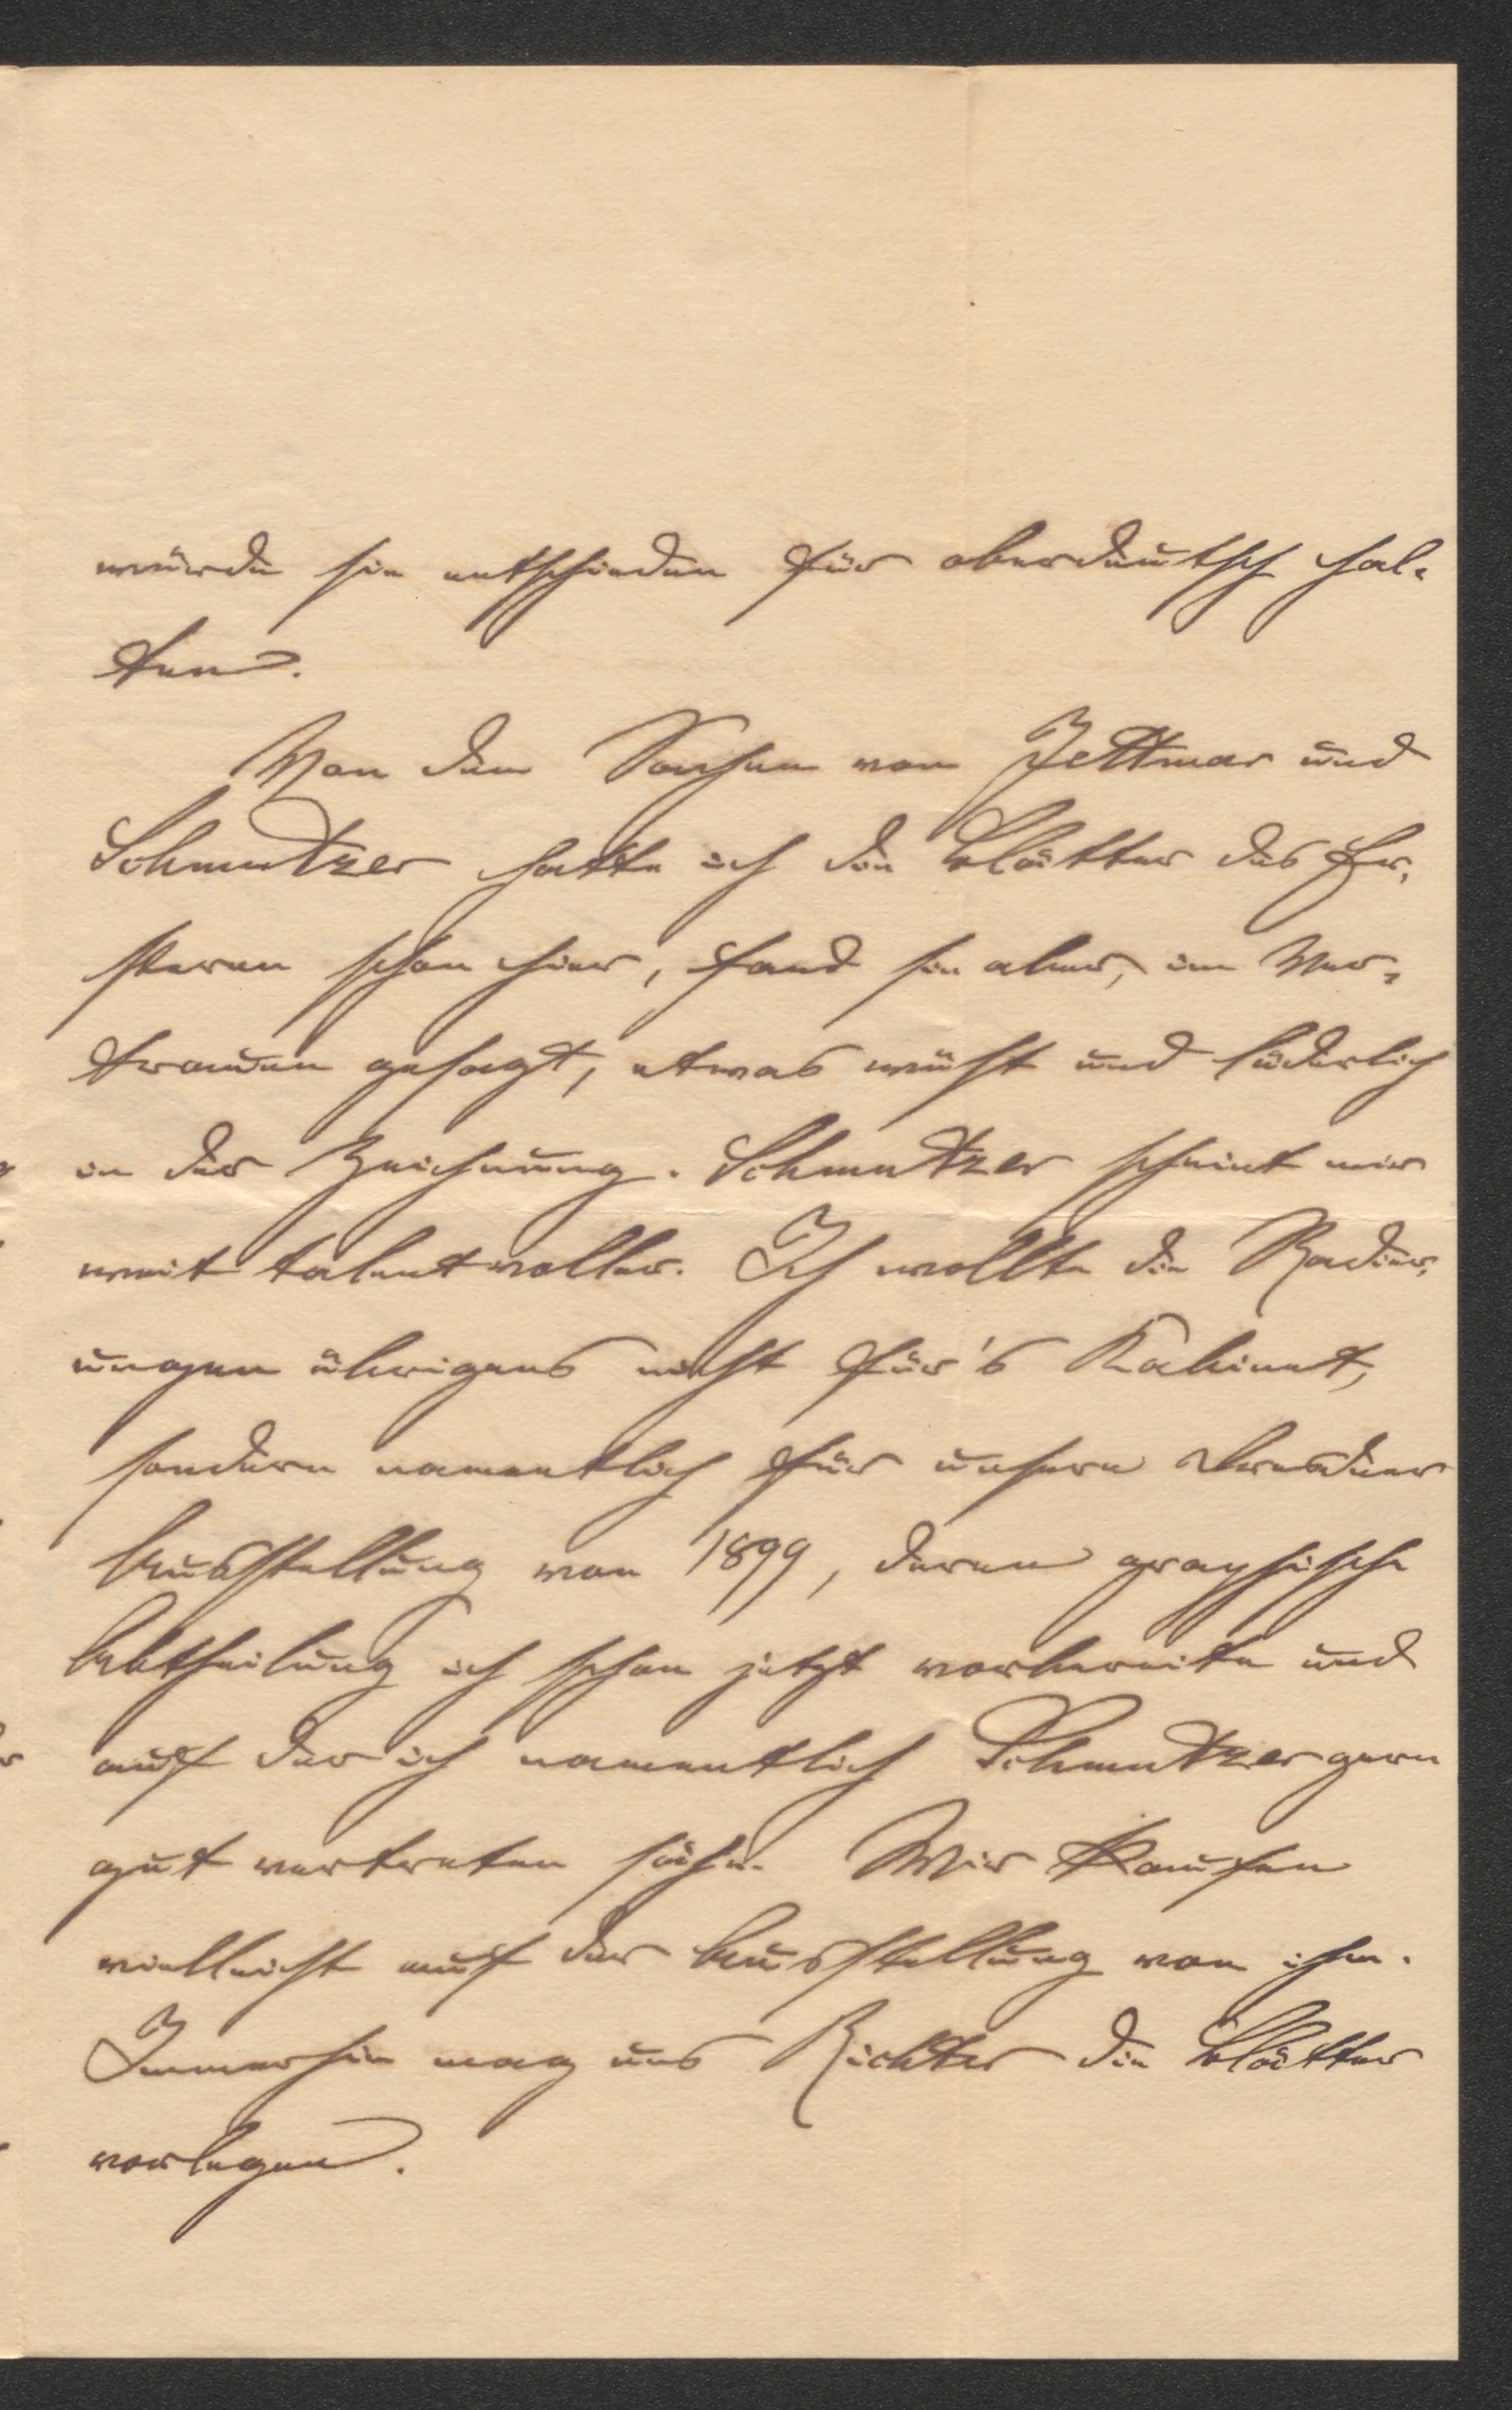 würde sie entschieden für oberdeutsch hal-
ten.
Von den Sachen von Jettmar und
Schmutzer hatte ich die Blätter des Er-
steren schon hier, fand sie aber, im Ver-
trauen gesagt, etwas wüst und lüderlich
in der Zeichnung. Schmutzer scheint mir
weit talentvoller. Ich wollte die Radier-
ungen übrigens nicht für's Kabinet,
sondern namentlich für unsere Dresdner
Ausstellung von 1899, deren graphische
Abtheilung ich schon jetzt vorbereite und
auf der ich namentlich Schmutzer gern
gut vertreten sähe. Wir kaufen
vielleicht auf der Ausstellung von ihm.
Immerhin mag uns Richter die Blätter
vorlegen.